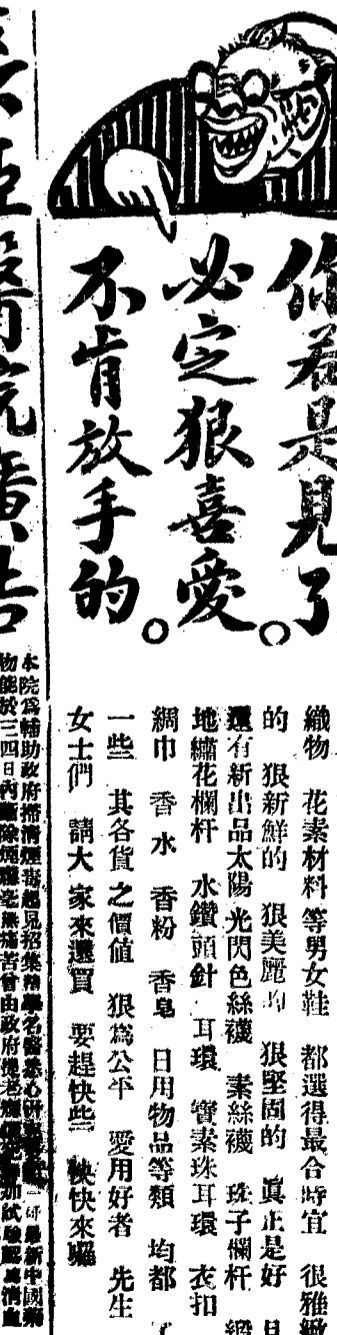 你若是見了
必定狠喜愛。
不肯放手的。
織物 花素材料等男女鞋 都選得最合時宜 很雅緻
的 狠新鮮的 狠美麗的 狠堅固的 眞正是好 且
還有新出品太陽光閃色絲襪 素絲襪 珠子欄杆 緞
地繡花欄杆 水鑽頭針 耳環 寶素珠耳環 衣扣
綢巾 香水 香粉 香皂 日用物品等類 均都
一些 其各貨之價値 狠爲公平 愛用好者 先生
女士們 請大家來選買 要趕快些 快快來囉
醫院廣告
本院爲輔助政府掃清煙毒起見招集 學名醫悉心研 最新中國藥
物能於三四日內 除煙癮毫無痛苦曾由政府